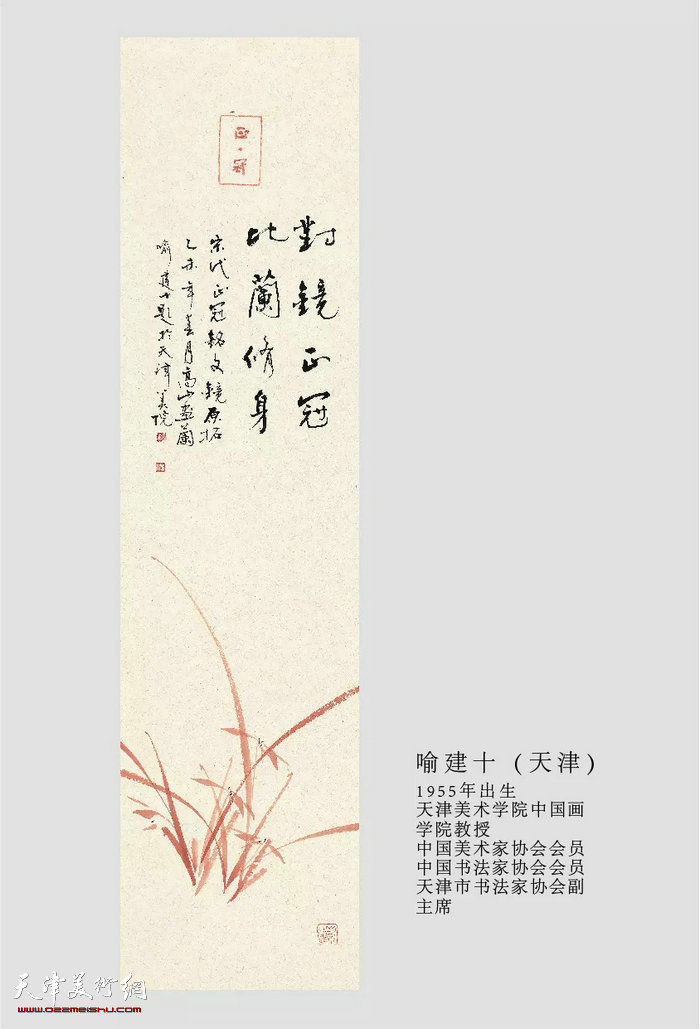 正·冠
對鏡正冠
比蘭脩身
宋代正冠銘文鏡原拓
乙未年春月高山畫蘭
喻建十題於天津美院
喻建十（天津）
1955年出生
天津美术学院中国画
学院教授
中国美术家协会会员
中国书法家协会会员
天津市书法家协会副
主席
天津美術網
www.022meishu.com